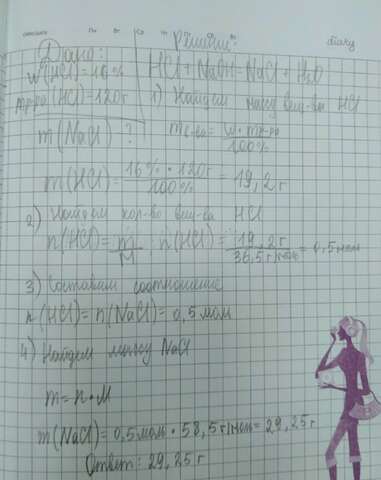 Пн Вт Ср
diary
Дано:
Решение:
w(HCl)=16%
HCl+NaOH=NaCl+H₂O
mр-ра(HCl)=120г
1) Найдем массу вещ-ва HCl
m(NaCl)?
mв-ва=w·mр-ра/100%
m(HCl)=16%·120г/100%=19,2г
2) Найдем кол-во вещ-ва HCl
n(HCl)=m/M; n(HCl)=19,2г/36,5г/моль=0,5моль
3) Составим соотношение
n(HCl)=n(NaCl)=0,5моль
4) Найдем массу NaCl
m=n·M
m(NaCl)=0,5моль·58,5г/моль=29,25г
Ответ: 29,25г